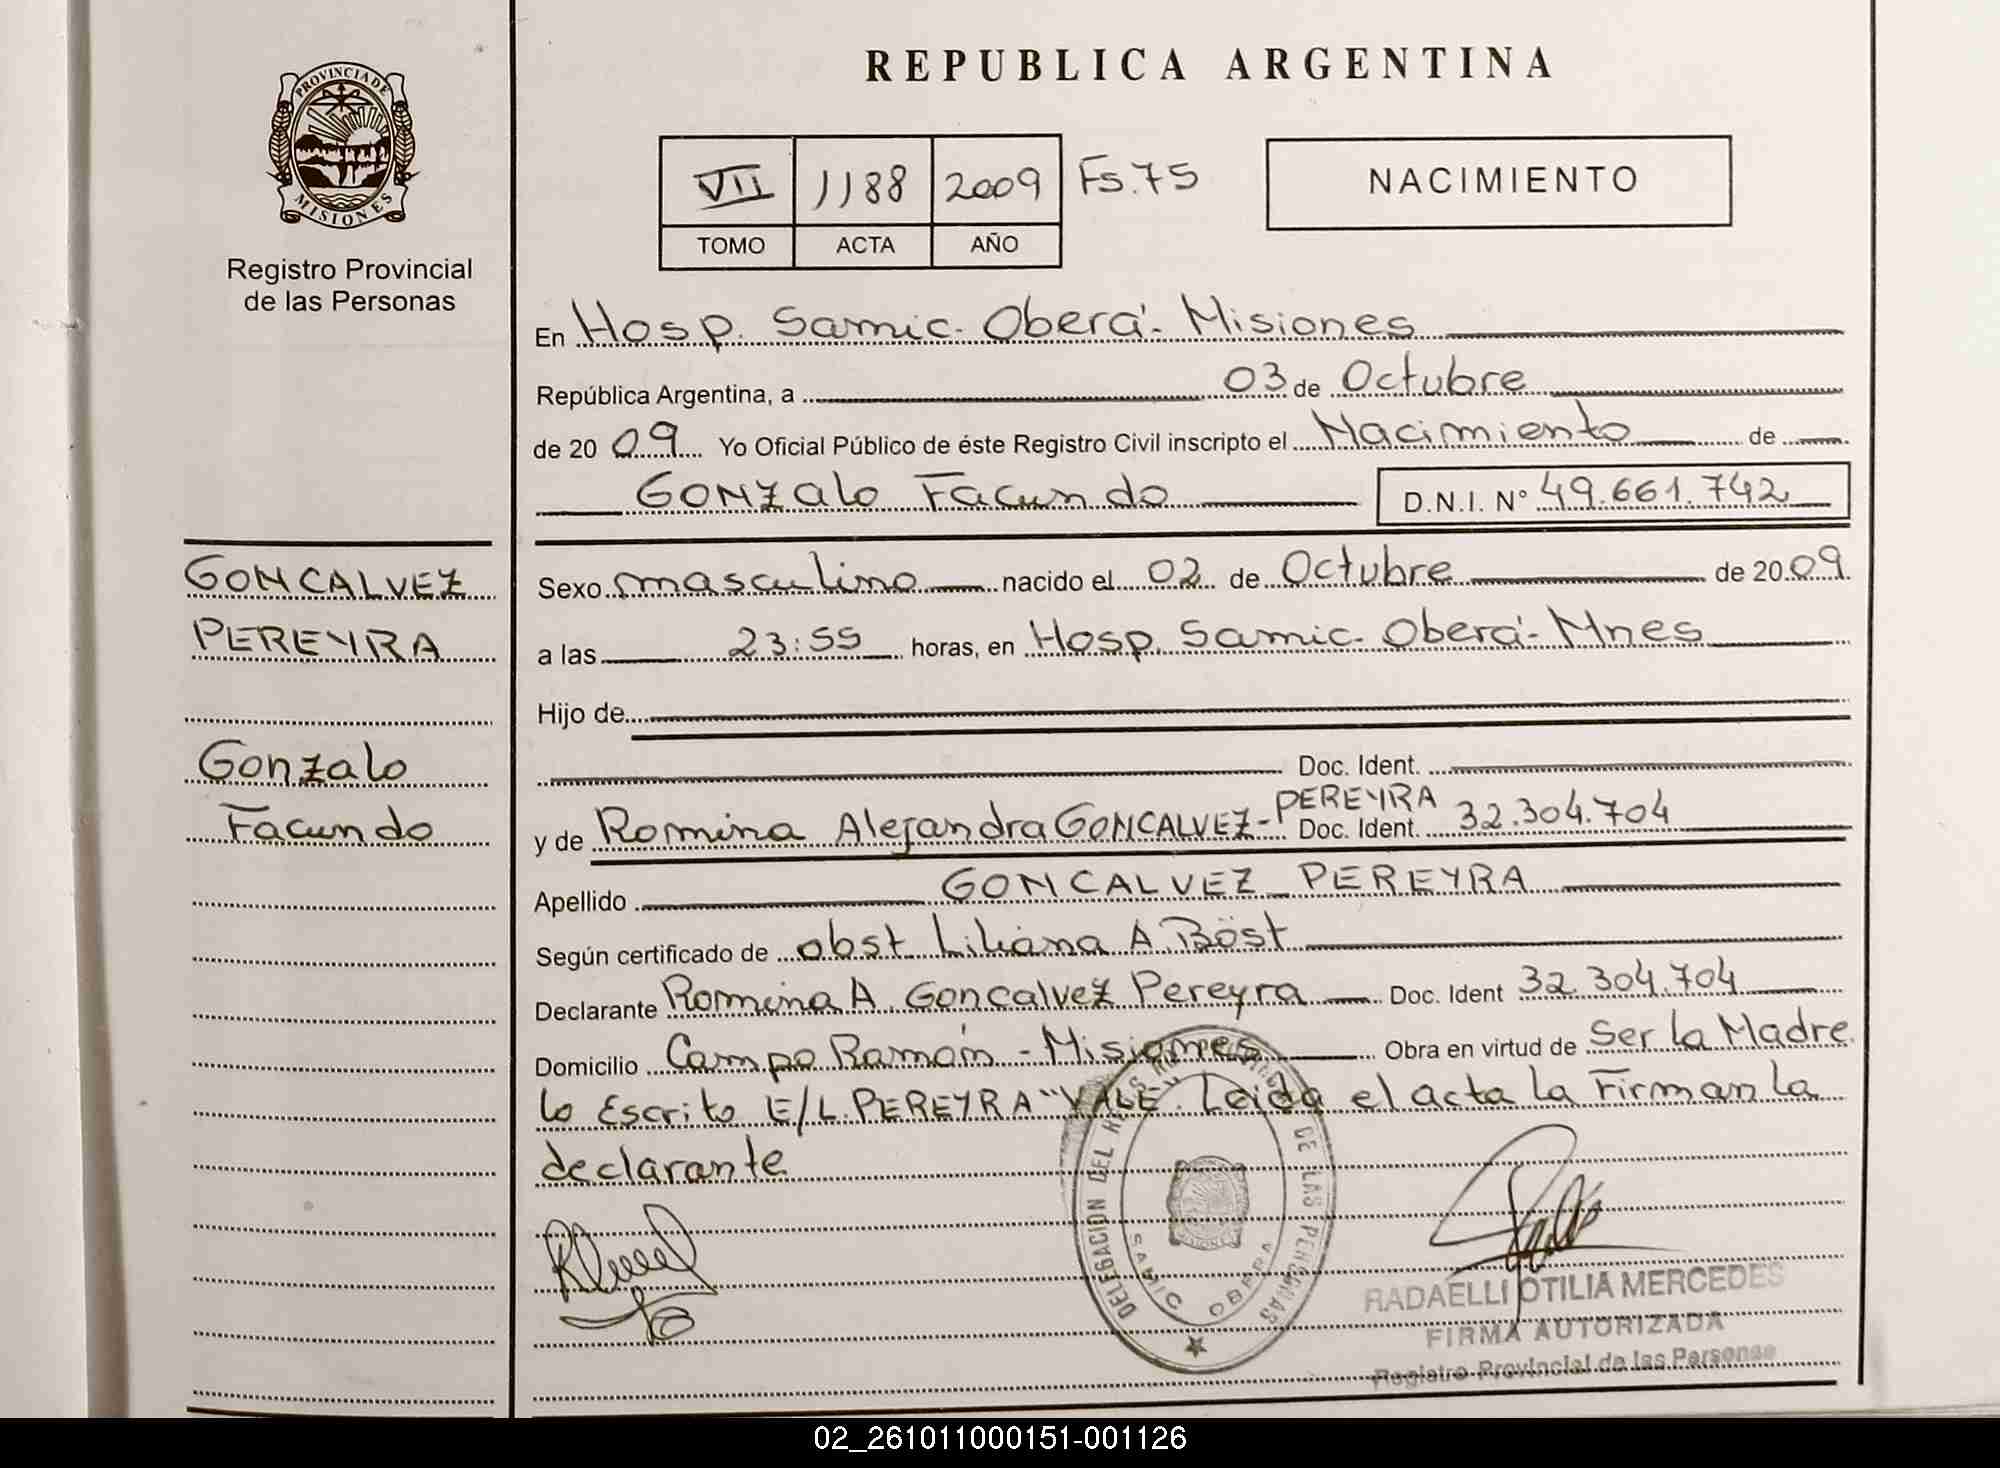 REPUBLICA ARGENTINA
PROVINCIA DE
MISIONES
Registro Provincial
de las Personas
VII 1188 2009 Fs.75
TOMO ACTA AÑO
NACIMIENTO
En Hosp. Samic. Oberá - Misiones
República Argentina, a 03 de Octubre
de 20 09 Yo Oficial Público de éste Registro Civil inscripto el Nacimiento de
GONZalo Facundo D.N.I. N° 49.661.742
GONCALVEZ
PEREYRA
Gonzalo
Facundo
Sexo masculino nacido el 02 de Octubre de 20 09
a las 23:55 horas, en Hosp. Samic. Oberá - Mnes
Hijo de
Doc. Ident.
y de Romina Alejandra GONCALVEZ - PEREYRA Doc. Ident. 32.304.704
Apellido GONCALVEZ PEREYRA
Según certificado de obst Liliana A. Böst
Declarante Romina A. Goncalvez Pereyra Doc. Ident 32.304.704
Domicilio Campo Ramón - Misiones Obra en virtud de Ser la Madre
lo Escrito E/L. PEREYRA "VALE". Leida el acta la Firman la
declarante
DELEGACION DEL DE LAS PERSONAS
SAMIC OBERA
RADAELLI OTILIA MERCEDES
FIRMA AUTORIZADA
Registro Provincial de las Personas
02_261011000151-001126